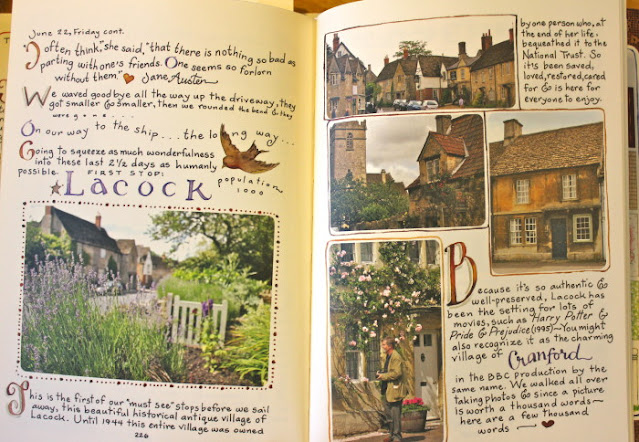 June 22, Friday cont.
"I often think," she said, "that there is nothing so bad as
parting with one's friends. One seems so forlorn
without them." Jane Austen
We waved good bye all the way up the driveway, they
got smaller & smaller, then we rounded the bend & they
were gone...
On our way to the ship... the long way...
Going to squeeze as much wonderfulness
into these last 2½ days as humanly
possible. FIRST STOP:
LACOCK
population
1000
This is the first of our "must see" stops before we sail
away, this beautiful historical antique village of
Lacock. Until 1944 this entire village was owned
226
by one person who, at
the end of her life,
bequeathed it to the
National Trust. So
it's been saved,
loved, restored, cared
for & is here for
everyone to enjoy.
Because it's so authentic &
well-preserved, Lacock has
been the setting for lots of
movies, such as Harry Potter &
Pride & Prejudice (1995)~You might
also recognize it as the charming
village of Cranford
in the BBC production by the
same name. We walked all over
taking photos & since a picture
is worth a thousand words~
here are a few thousand
words —